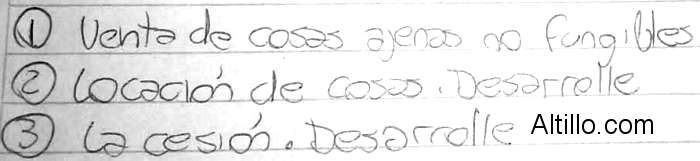 ① Venta de cosas ajenas no fungibles
② Locación de cosas. Desarrolle
③ La cesión. Desarrolle Altillo.com